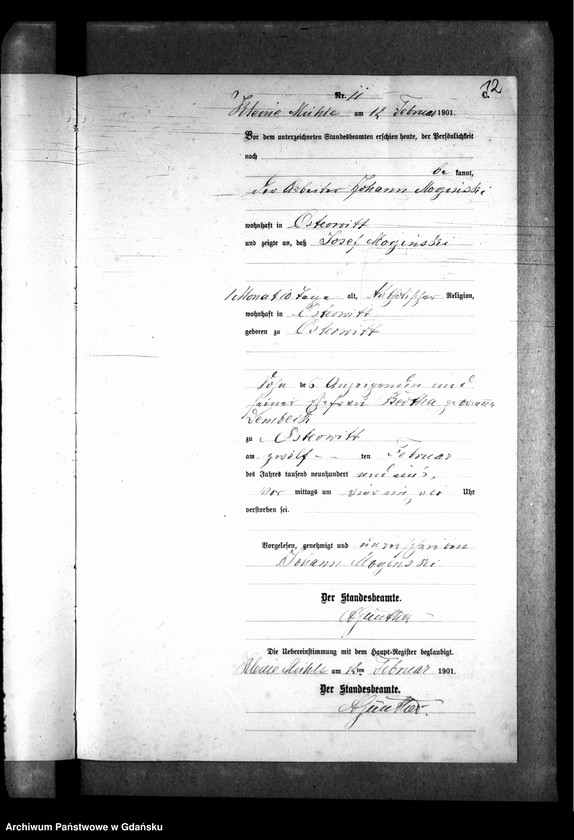 12
Nr. 11
C.
Kleine Mühle am 12 Februar 1901.
Vor dem unterzeichneten Standesbeamten erschien heute, der Persönlichkeit
nach
be kannt,
der Arbeiter Johann Moginski
wohnhaft in Ostrowitt
und zeigte an, daß Josef Moginski
1 Monat 10 Tage alt, katholischer Religion,
wohnhaft in Ostrowitt
geboren zu Ostrowitt
Sohn des Anzeigenden und
seiner Ehefrau Bertha geborene
Dembeck
zu Ostrowitt
am zwölf ten Februar
des Jahres tausend neunhundert und eins,
Vor mittags um Uhr
verstorben sei.
Vorgelesen, genehmigt und unterschrieben
Johann Moginski
Der Standesbeamte.
AGünther
Die Uebereinstimmung mit dem Haupt-Register beglaubigt.
Kleine Mühle am 12ten Februar 1901.
Der Standesbeamte.
AGünther.
Archiwum Państwowe w Gdańsku